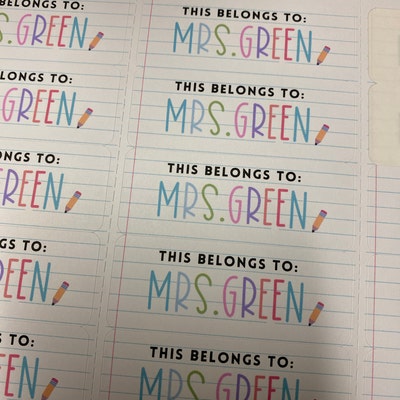 BELONGS TO:
S.GREEN
LONGS TO:
GREEN
NGS TO:
REEN
GS TO:
EEN
S TO:
EEN
THIS BELONGS TO:
MRS.GREEN
THIS BELONGS TO:
MRS.GREEN
THIS BELONGS TO:
MRS.GREEN
THIS BELONGS TO:
MRS.GREEN
THIS BELONGS TO:
MRS.GREEN